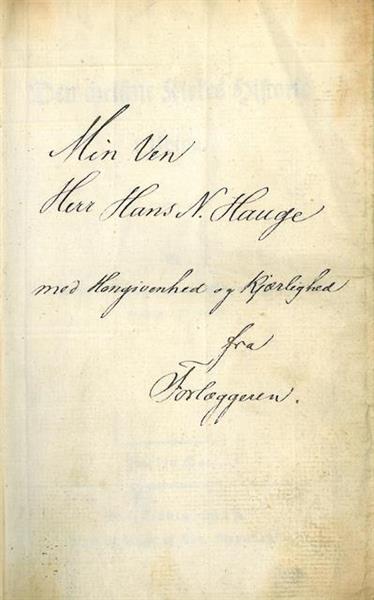 Min Ven
Herr Hans N. Hauge
med Hengivenhed og Kjærlighed
fra
Forlæggeren.